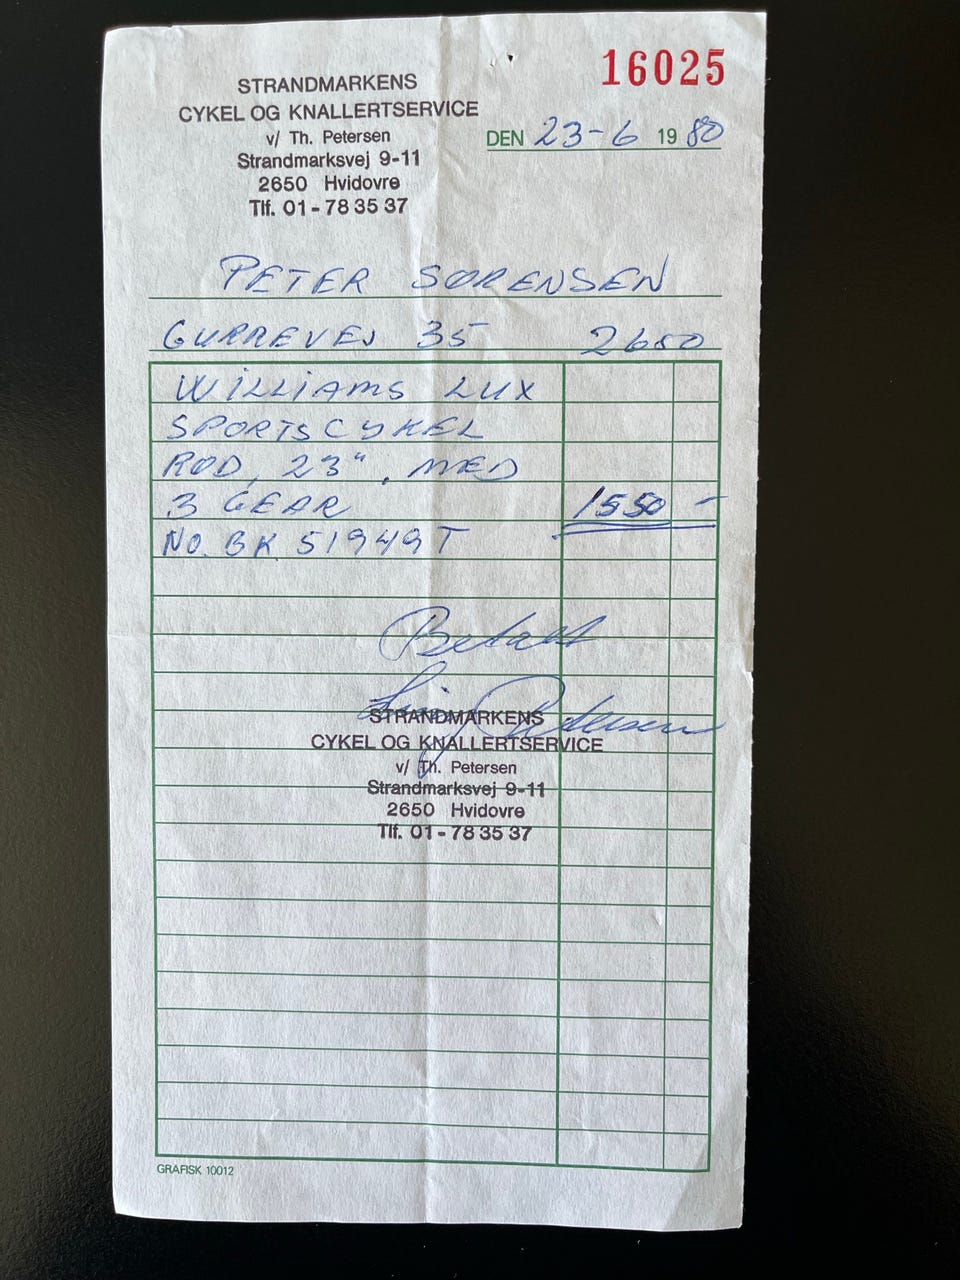 16025
STRANDMARKENS
CYKEL OG KNALLERTSERVICE
v/ Th. Petersen
Strandmarksvej 9-11
2650 Hvidovre
Tlf. 01-78 35 37
DEN 23-6 1980
PETER SØRENSEN
GURREVEJ 35 2650
WILLIAMS LUX
SPORTSCYKEL
RØD, 23", MED
3 GEAR 1550 -
NO. BK 51949T
Betalt
Petersen
STRANDMARKENS
CYKEL OG KNALLERTSERVICE
v/ Th. Petersen
Strandmarksvej 9-11
2650 Hvidovre
Tlf. 01-78 35 37
GRAFISK 10012